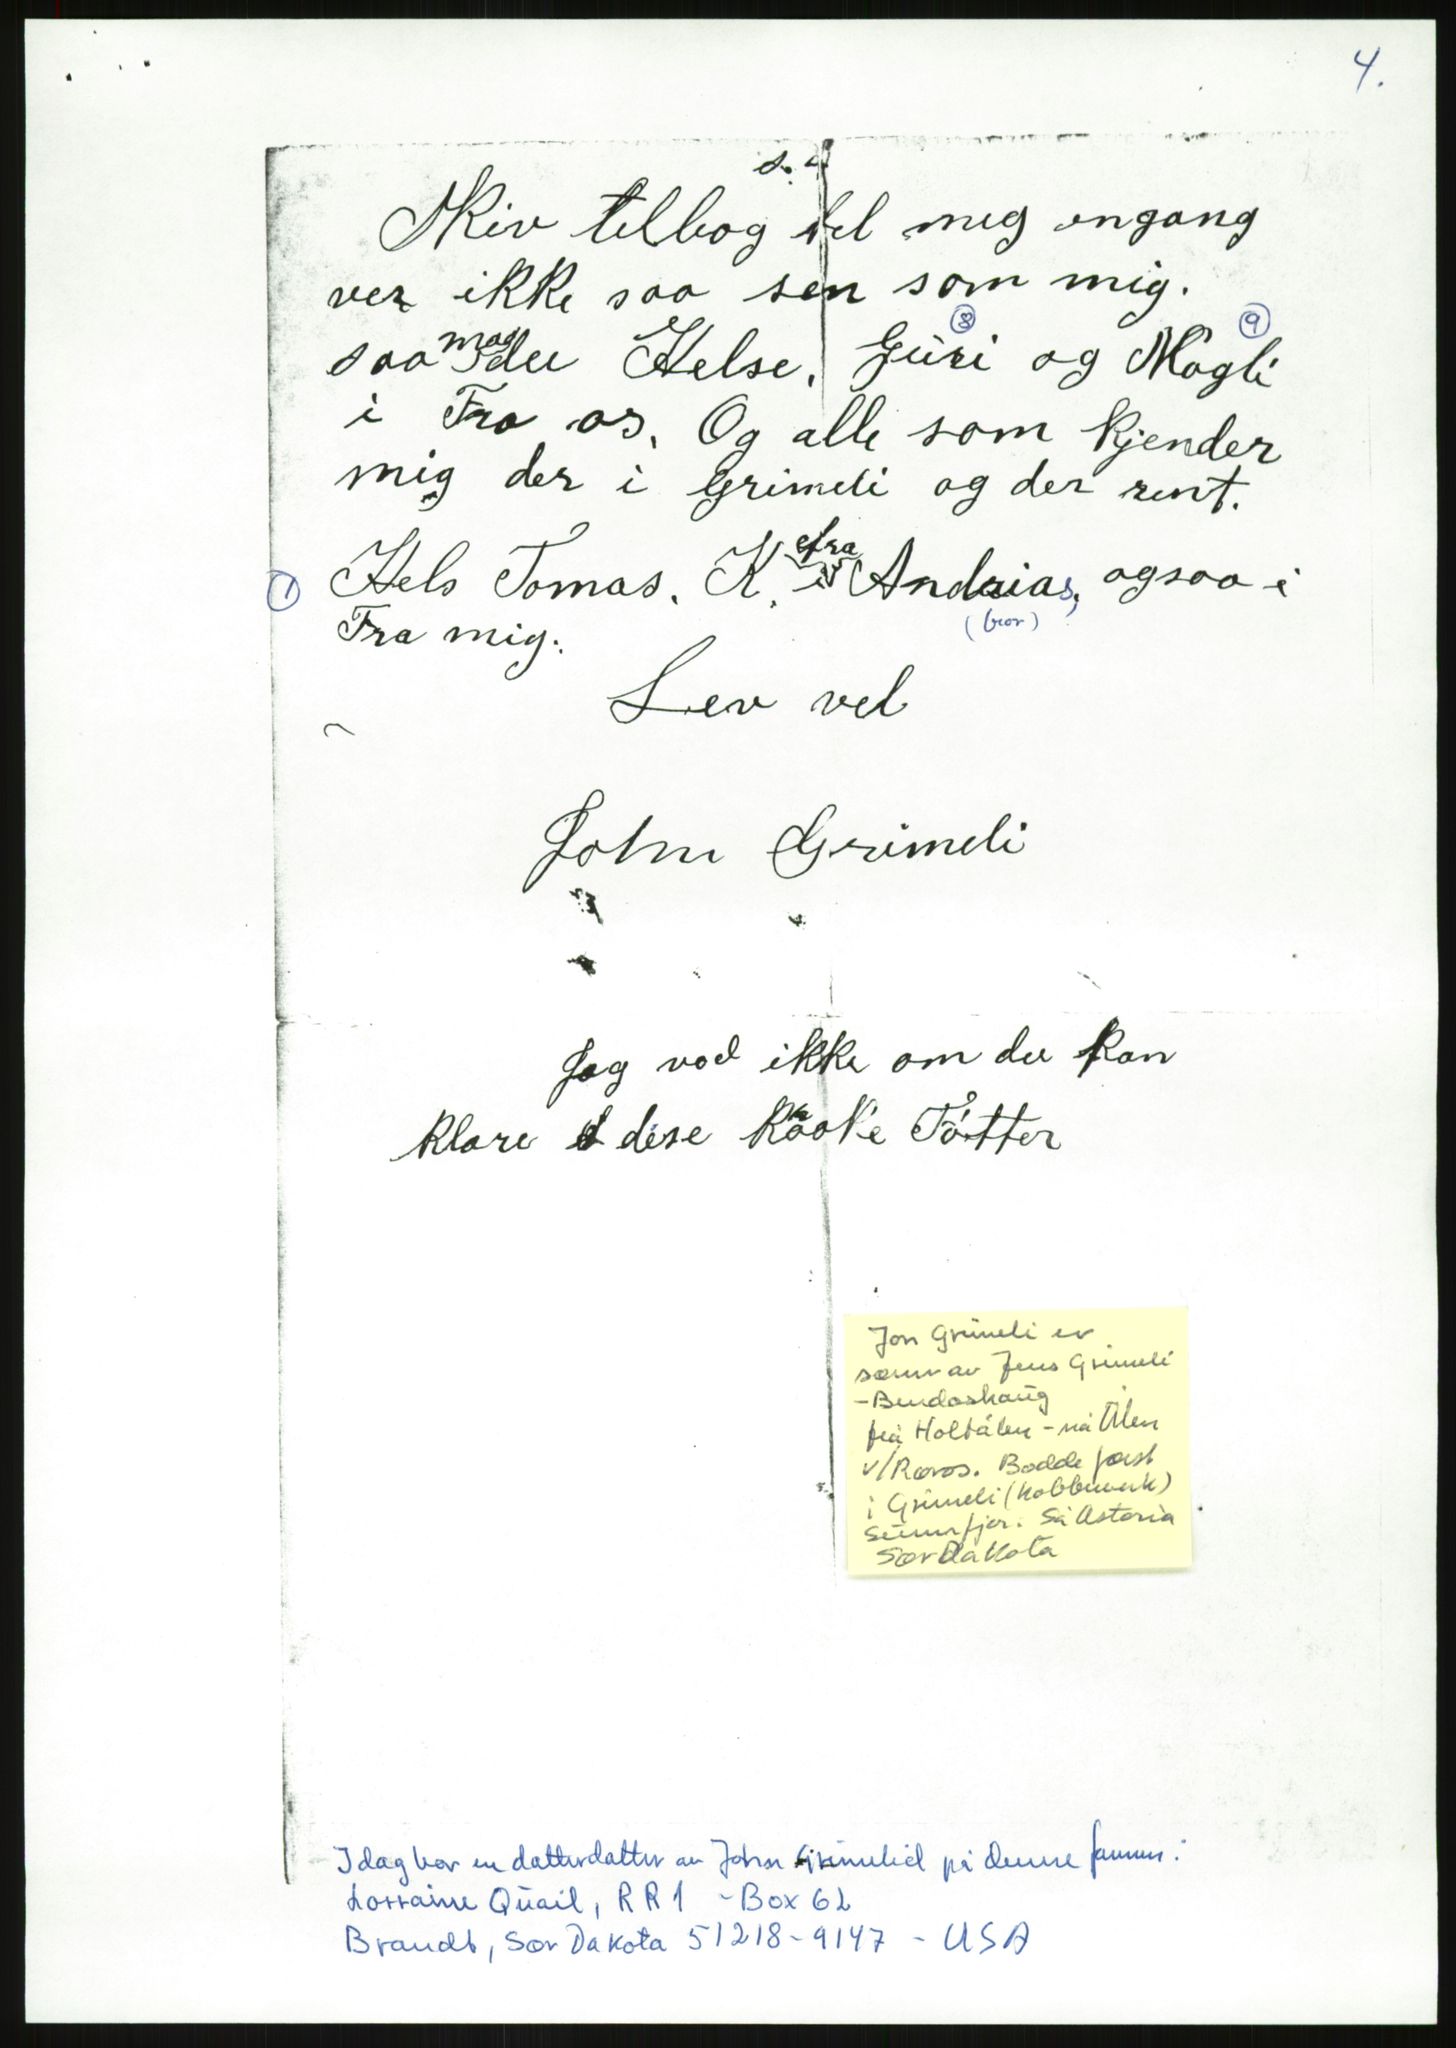 4.
s. 4
Skiv tilbog tel meg engang
ver ikke saa sen som mig.
8 9
saa maa du Helse, Guri og Magli
i Fra os, Og alle som kjender
mig der i Grimeli og der runt.
1 Hels Tomas. K. efra Andrias, ogsaa i
(bror)
Fra mig.
Lev vel
John Grimeli
Jeg ved ikke om du kan
klare dise Kraake Tøtter
Jon Grimeli er
sønn av Jens Grimeli
- Bendoshaug
frå Holtålen - nå Ålen
v/Røros. Bodde først
i Grimeli (kobberverk)
Sunnfjor. Så Astoria
Sør Dakota
I dag bor en datterdatter av John Grimelid på denne farmen:
Lorraine Quail, RR1 - Box 62
Brandt, Sør Dakota 51218-9147 - USA